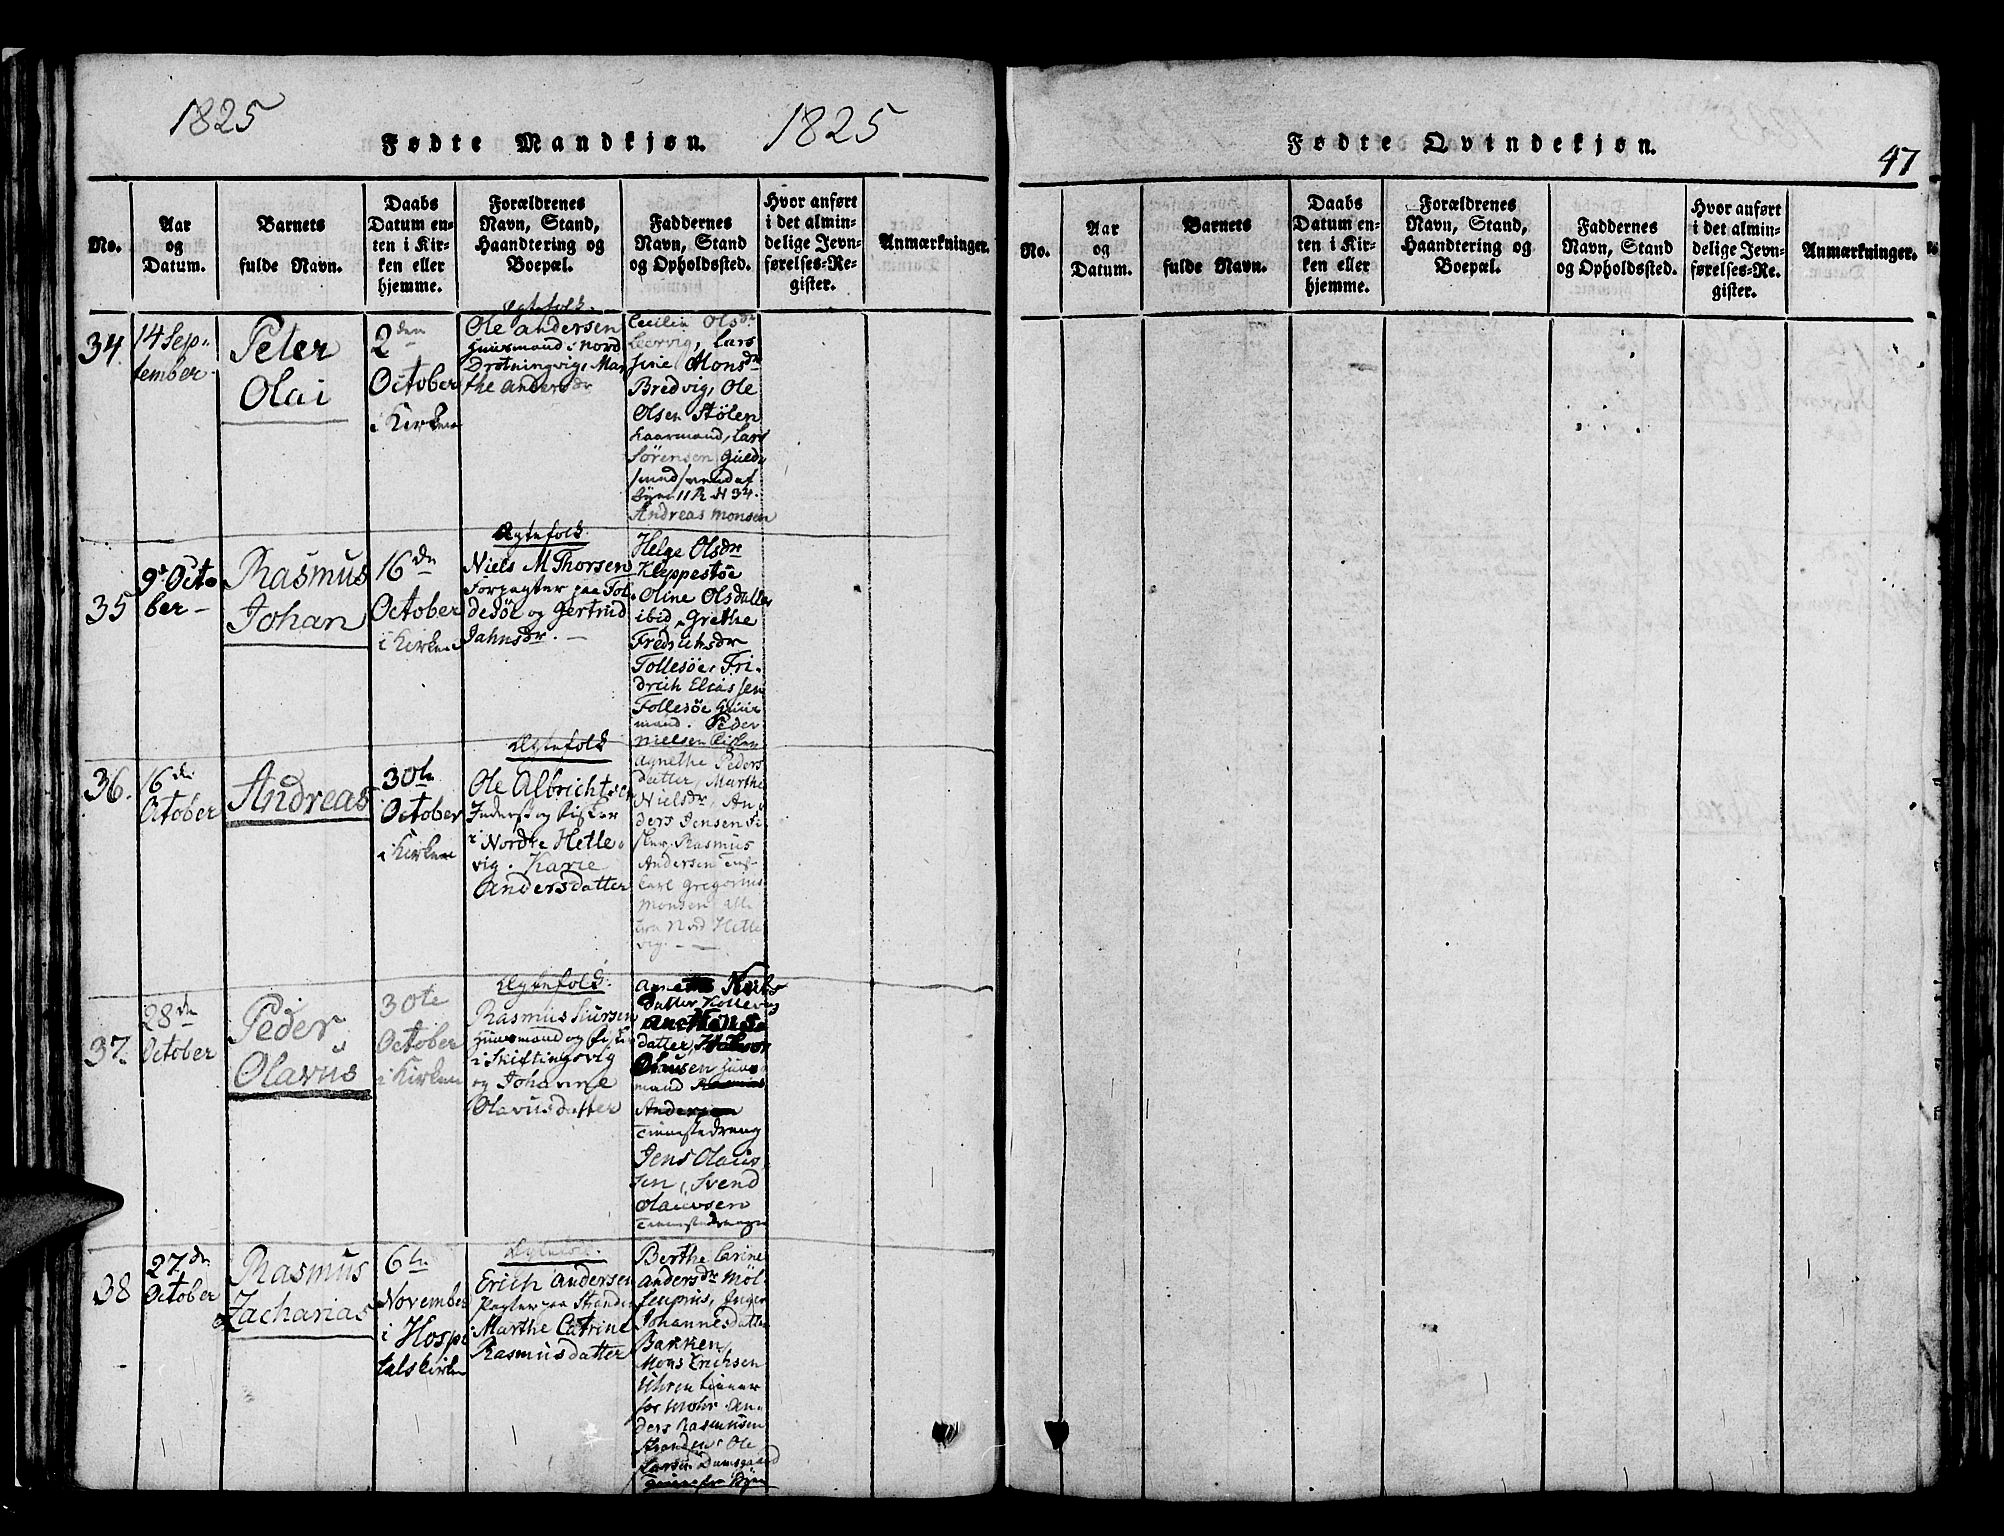 1825
Fødte Mandkjøn.
1825
No.
Aar
og
Datum.
Barnets
fulde Navn.
Daabs
Datum en-
ten i Kir-
ken eller
hjemme.
Forældrenes
Navn, Stand,
Haandtering og
Boepæl.
Faddernes
Navn, Stand
og Opholdssted.
Hvor anført
i det almin-
delige Jevn-
førelses-Re-
gister.
Anmærkninger.
34.
14 Sep-
tember.
Peter
Olai
2den
October
i Kirken
Ægtefolk.
Ole Andersen
Huusmand i Nord
Drotningvig, Mar
the Andersdr
Cecilia Olsdr
Leervig, Lars
sine Monsdr
Bredvig, Ole
Olsen Stølen
Lars
Sørensen Guld
smed svend af
11 R N 34.
Andreas Monsen
35
9de Octo
ber –
Rasmus
Johan
16de
October
i Kirken
Ægtefolk
Niels M Thorsen
Forpagter paa Fol
desøe og Gertrud
Jahnsdr. —
Helge Olsdr
Kleppestøe
Oline Olsdatter
ibid, Grethe
Fredrichsdr
Follesøe, Fri
drich Eliassen
Follesøe Huus
mand. Peder
Nielsen Fisker
36.
16de
October
Andreas
30te
October
i Kirken
Ægtefolk
Ole Albrichtsen
Inderst og Fisker
i Nordre Hetle
vig. Karie
Andersdatter
Agnethe Peders
datter, Marthe
Nielsdr, An
ders Jensen Fi
sker, Rasmus
Andersen
Carl Gregorius
Monsen alle
fra Nord Hetle
vig. —
37.
28de
October
Peder
Olavus
30te
October
i Kirken
Ægtefolk.
Rasmus
Huusmand og Fisker
i Skiftingsvig
og Johanne
Olavusdatter
datter
datter,
Olausen Huus
mand Rasmus
Andersen
Tienestedreng
Jens Olaus
sen, Svend
Olauvsen
Tienestedrenge
38
27de
October
Rasmus
Zacharias
6te
November
i Hospi
talskirken
Ægtefolk.
Erich Andersen
Pagter paa Stranden
Marthe Catrine
Rasmusdatter
Berthe Carine
Andersdr Møl
Inger
Johannesdatter
Bakken,
Mons Erichsen
Uhren tiener
for Mohr. An
ders Rasmusen
Stranden Ole
Larsen Damsgaard
Fødte Qvindekjøn.
47
No.
Aar
og
Datum.
Barnets
fulde Navn.
Daabs
Datum en-
ten i Kir-
ken eller
hjemme.
Forældrenes
Navn, Stand,
Haandtering og
Boepæl.
Faddernes
Navn, Stand
og Opholdssted.
Hvor anført
i det almin-
delige Jevn-
førelses-Re-
gister.
Anmærkninger.